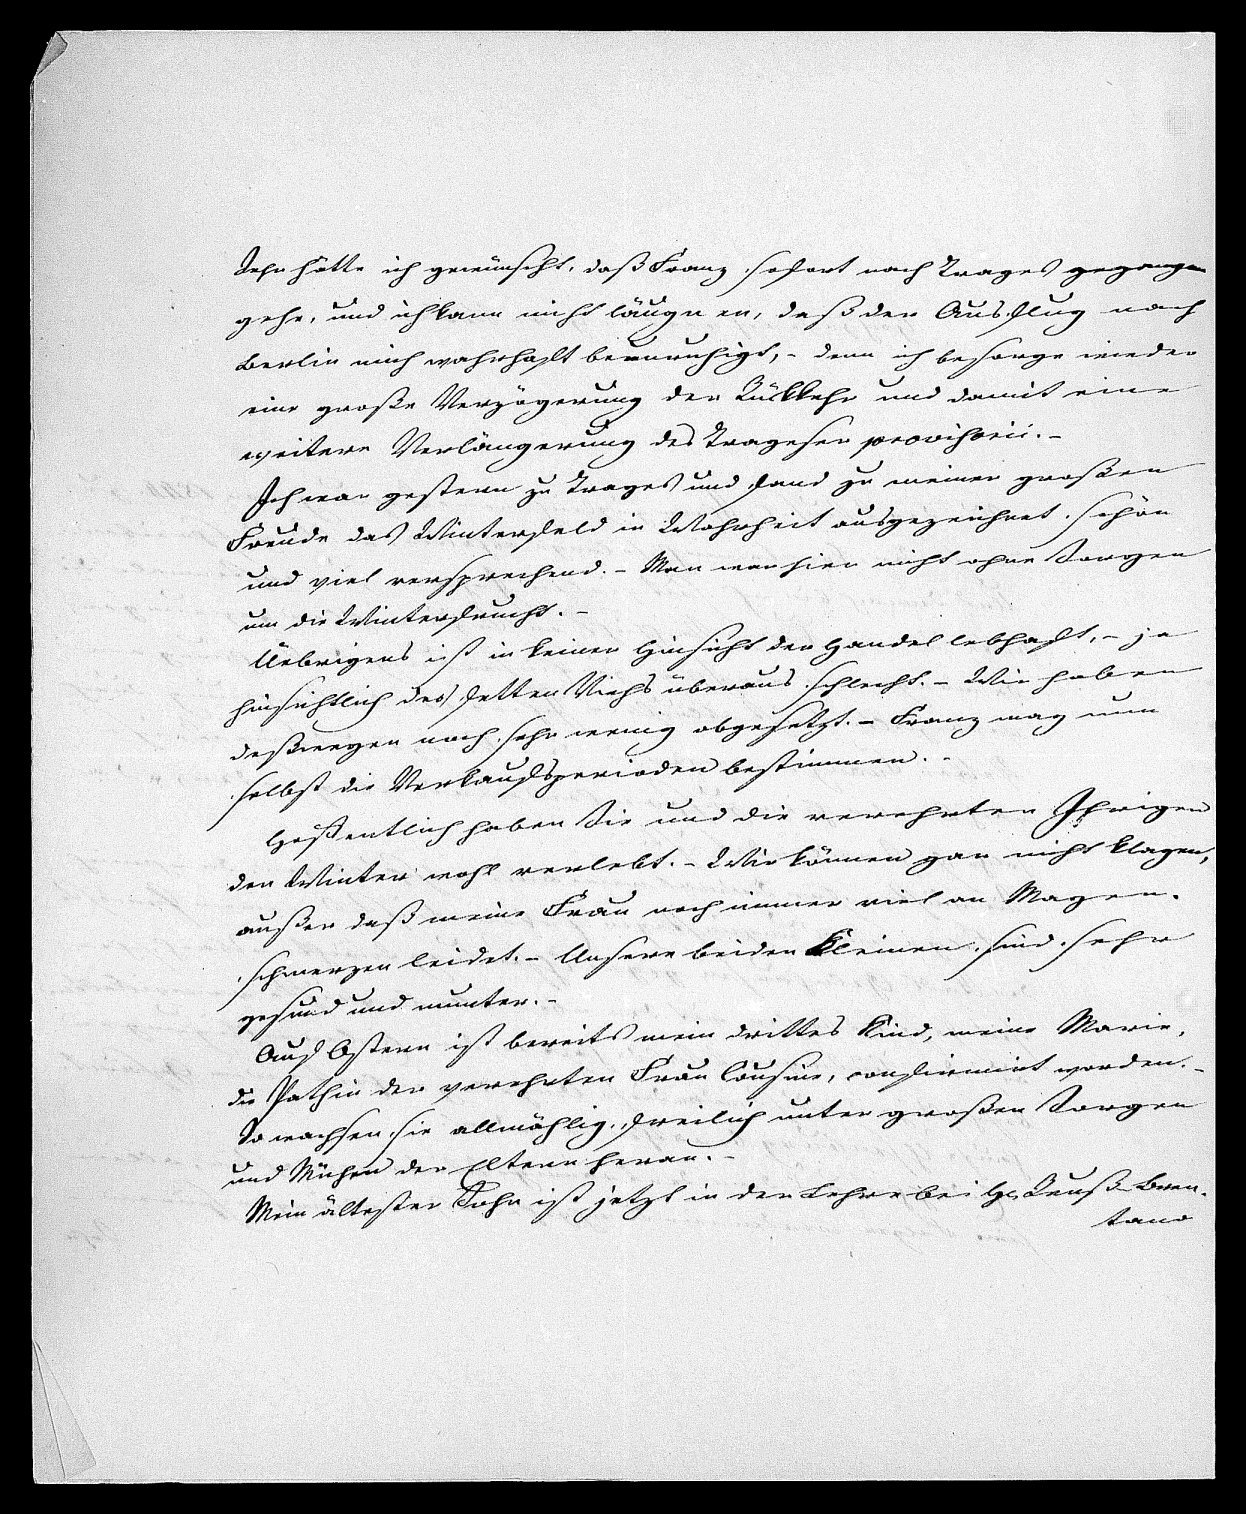 Sehr hätte ich gewünscht, daß Franz sofort nach Trages gegangen
gehe, und ich kann nicht läugnen, daß der Ausflug nach
Berlin mich wahrhaft beunruhigt, - denn ich besorge wieder
eine große Verzögerung der Rückkehr und damit eine
weitere Verlängerung des Trageser provisorii. -
Ich war gestern zu Trages und fand zu meiner großen
Freude das Winterfeld in Wahrheit ausgezeichnet schön
und viel versprechend. - Man war hier nicht ohne Sorgen
um die Winterfrucht. -
Uebrigens ist in keiner Hinsicht der Handel lebhaft, - ja
hinsichtlich des fetten Viehs überaus schlecht. - Wir haben
deßwegen noch sehr wenig abgesetzt. - Franz mag nun
selbst die Verkaufsperioden bestimmen. -
Hoffentlich haben Sie und die verehrten Ihrigen
den Winter wohl verlebt. - Wir können gar nicht klagen,
außer daß meine Frau noch immer viel an Magen-
schmerzen leidet. - Unsere beiden Kleinen sind sehr
gesund und munter. -
Auf Ostern ist bereits mein drittes Kind, meine Marie,
die Pathin der verehrten Frau Cousine, confirmirt worden. -
So wachsen sie allmählig, freilich unter großen Sorgen
und Mühen der Eltern heran. -
Mein ältester Sohn ist jetzt in der Lehre bei H. Reuß-Bren-
tano